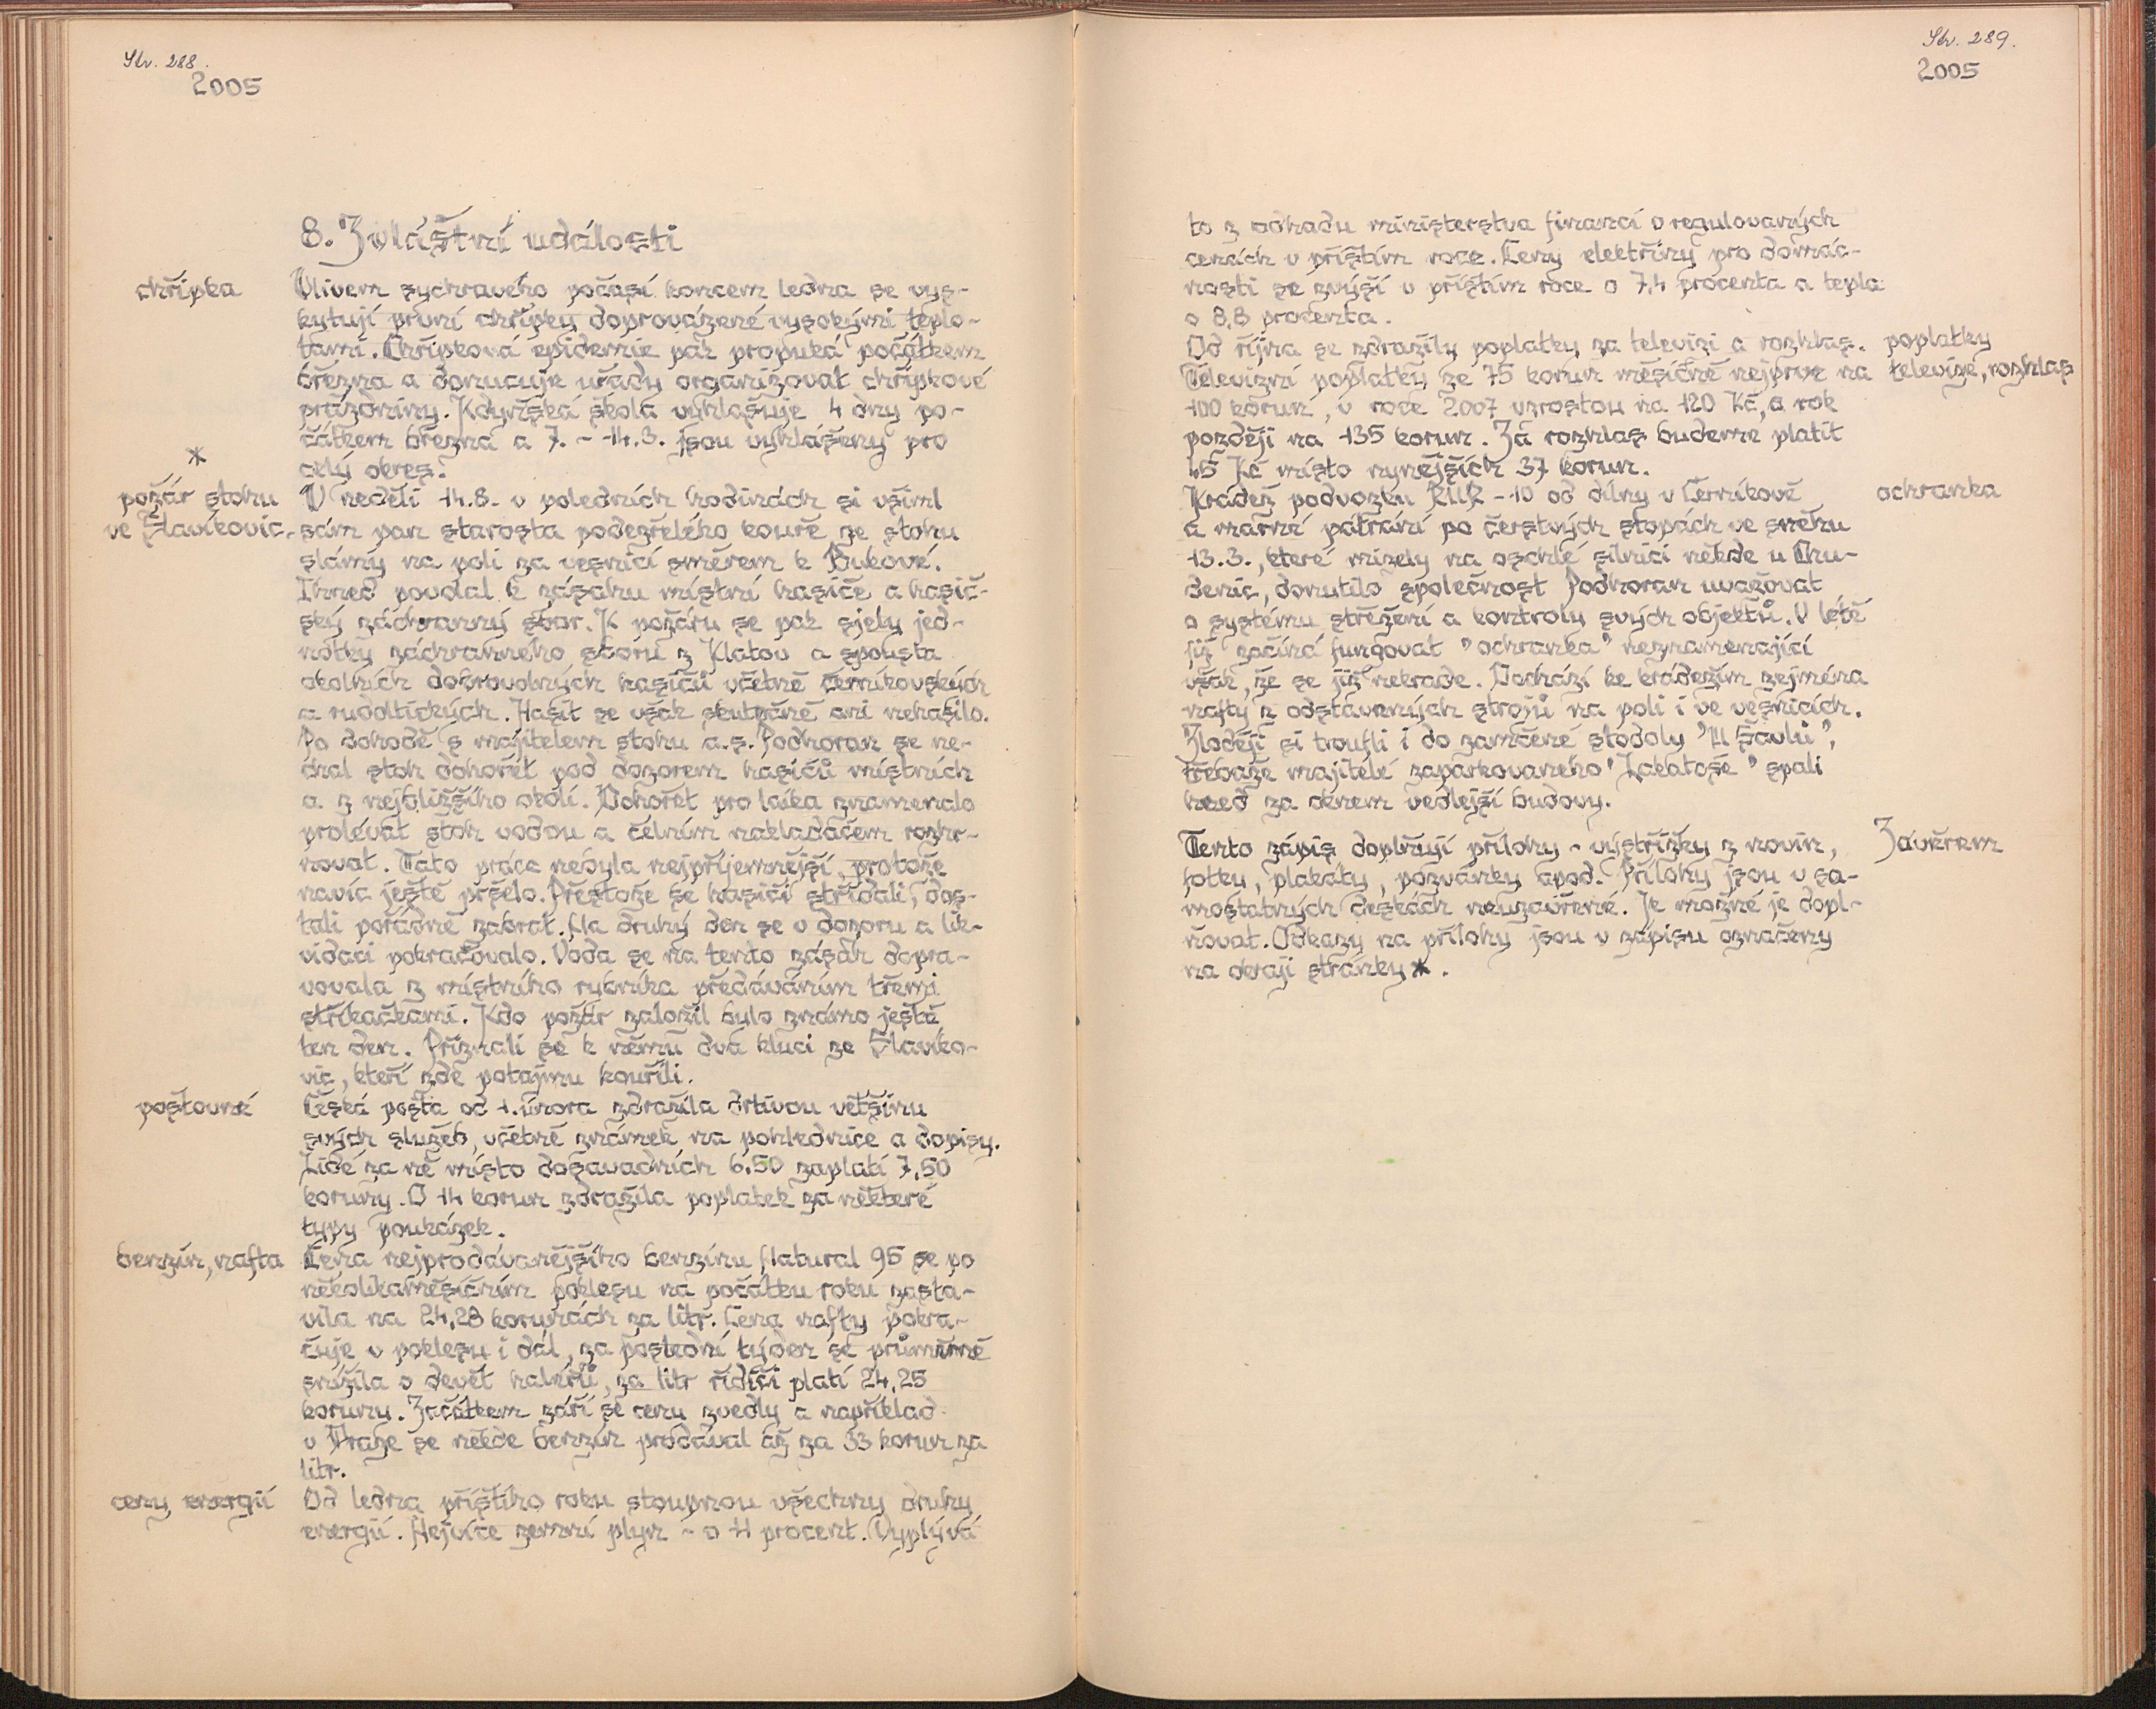 Str. 288.
2005
8. Zvláštní události
chřipka
Vlivem sychravého počasí koncem ledna se vys-
kytují první chřipky doprovázené vysokými teplo-
tami. Chřipková epidemie pak propuká počátkem
března a donucuje úřady organizovat chřipkové
prázdniny. Kdyňská škola vyhlašuje 4 dny po-
čátkem března a 7. - 14.3. jsou vyhlášeny pro
celý okres.
*
požár stohu
ve Slavíkovic.
V neděli 14.8. v poledních hodinách si všiml
sám pan starosta podezřelého kouře ze stohu
slámy na poli za vesnicí směrem k Bukové.
Ihned povolal k zásahu místní hasiče a hasič-
ský záchranný sbor. K požáru se pak sjely jed-
notky záchranného sboru z Klatov a spousta
okolních dobrovolných hasičů včetně černíkovských
a rudoltických. Hasit se však skutečně ani nehasilo.
Po dohodě s majitelem stohu a.s. Podhoran se ne-
chal stoh dohořet pod dozorem hasičů místních
a z nejbližšího okolí. Dohořet pro laika znamenalo
prolévat stoh vodou a čelním nakladačem rozhr-
novat. Tato práce nebyla nejpříjemnější, protože
navíc ještě pršelo. Přestože se hasiči střídali, dos-
tali pořádně zabrat. Na druhý den se v dozoru a lik-
vidaci pokračovalo. Voda se na tento zásah dopra-
vovala z místního rybníka předáváním třemi
stříkačkami. Kdo požár založil bylo známo ještě
ten den. Přiznali se k němu dva kluci ze Slavíko-
vic, kteří zde potajmu kouřili.
poštovné
Česká pošta od 1. února zdražila drtivou většinu
svých služeb, včetně známek na pohlednice a dopisy.
Lidé za ně místo dosavadních 6,50 zaplatí 7,50
koruny. O 14 korun zdražila poplatek za některé
typy poukázek.
benzín, nafta
Cena nejprodávanějšího benzínu Natural 95 se po
několikaměsíčním poklesu na počátku roku zasta-
vila na 24,28 korunách za litr. Cena nafty pokra-
čuje v poklesu i dál, za poslední týden se průměrně
snížila o devět haléřů, za litr řidiči platí 24,25
koruny. Začátkem září se cenu zvedly a například
v Praze se někde benzín prodával až za 33 korun za
litr.
ceny energií
Od ledna příštího roku stoupnou všechny druhy
energií. Nejvíce zemní plyn - o 11 procent. Vyplývá
Str. 289.
2005
to z odhadu ministerstva financí o regulovaných
cenách v příštím roce. Ceny elektřiny pro domác-
nosti se zvýší v příštím roce o 7,4 procenta a tepla
o 8,8 procenta.
poplatky
televize, rozhlas
Od října se zdražily poplatky za televizi a rozhlas.
Televizní poplatky ze 75 korun měsíčně nejprve na
100 korun, v roce 2007 vzrostou na 120 Kč, a rok
později na 135 korun. Za rozhlas budeme platit
45 Kč místo nynějších 37 korun.
ochranka
Krádež podvozku RUR-10 od dílny v Černíkově
a marné pátrání po čerstvých stopách ve sněhu
13.3., které mizely na oschlé silnici někde u Chu-
denic, donutilo společnost Podhoran uvažovat
o systému střežení a kontroly svých objektů. V létě
již začíná fungovat "ochranka" neznamenající
však, že se již nekrade. Dochází ke krádežím zejména
nafty z odstavených strojů na poli i ve vesnicích.
Zloději si troufli i do zamčené stodoly "U Šavlů",
třebaže majitelé zaparkovaného "Zakatoše" spali
hned za oknem vedlejší budovy.
Závěrem
Tento zápis doplňují přílohy - výstřižky z novin,
fotky, plakáty, pozvánky apod. Přílohy jsou v sa-
mostatných deskách neuzavřené. Je možné je dopl-
ňovat. Odkazy na přílohy jsou v zápisu označeny
na okraji stránky *.